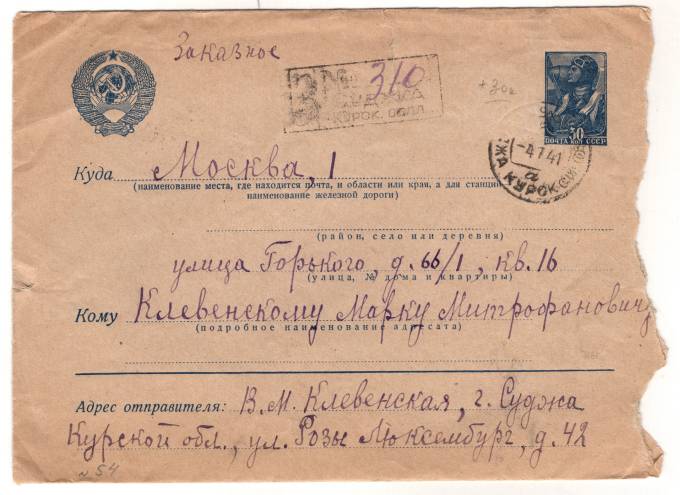 Заказное
З № 310
СУДЖА
КУРСК. ОБЛ.
+30к
30
ПОЧТА КОП СССР
-4 7 41
а
Куда Москва, 1
(наименование места, где находится почта, и области или края, а для станций
наименование железной дороги)
(район, село или деревня)
улица Горького, д. 66/1, кв. 16
(улица, № дома и квартиры)
Кому Клевенскому Марку Митрофановичу
(подробное наименование адресата)
Адрес отправителя: В. М. Клевенская, г. Суджа
Курской обл., ул. Розы Люксембург, д. 42
№ 54